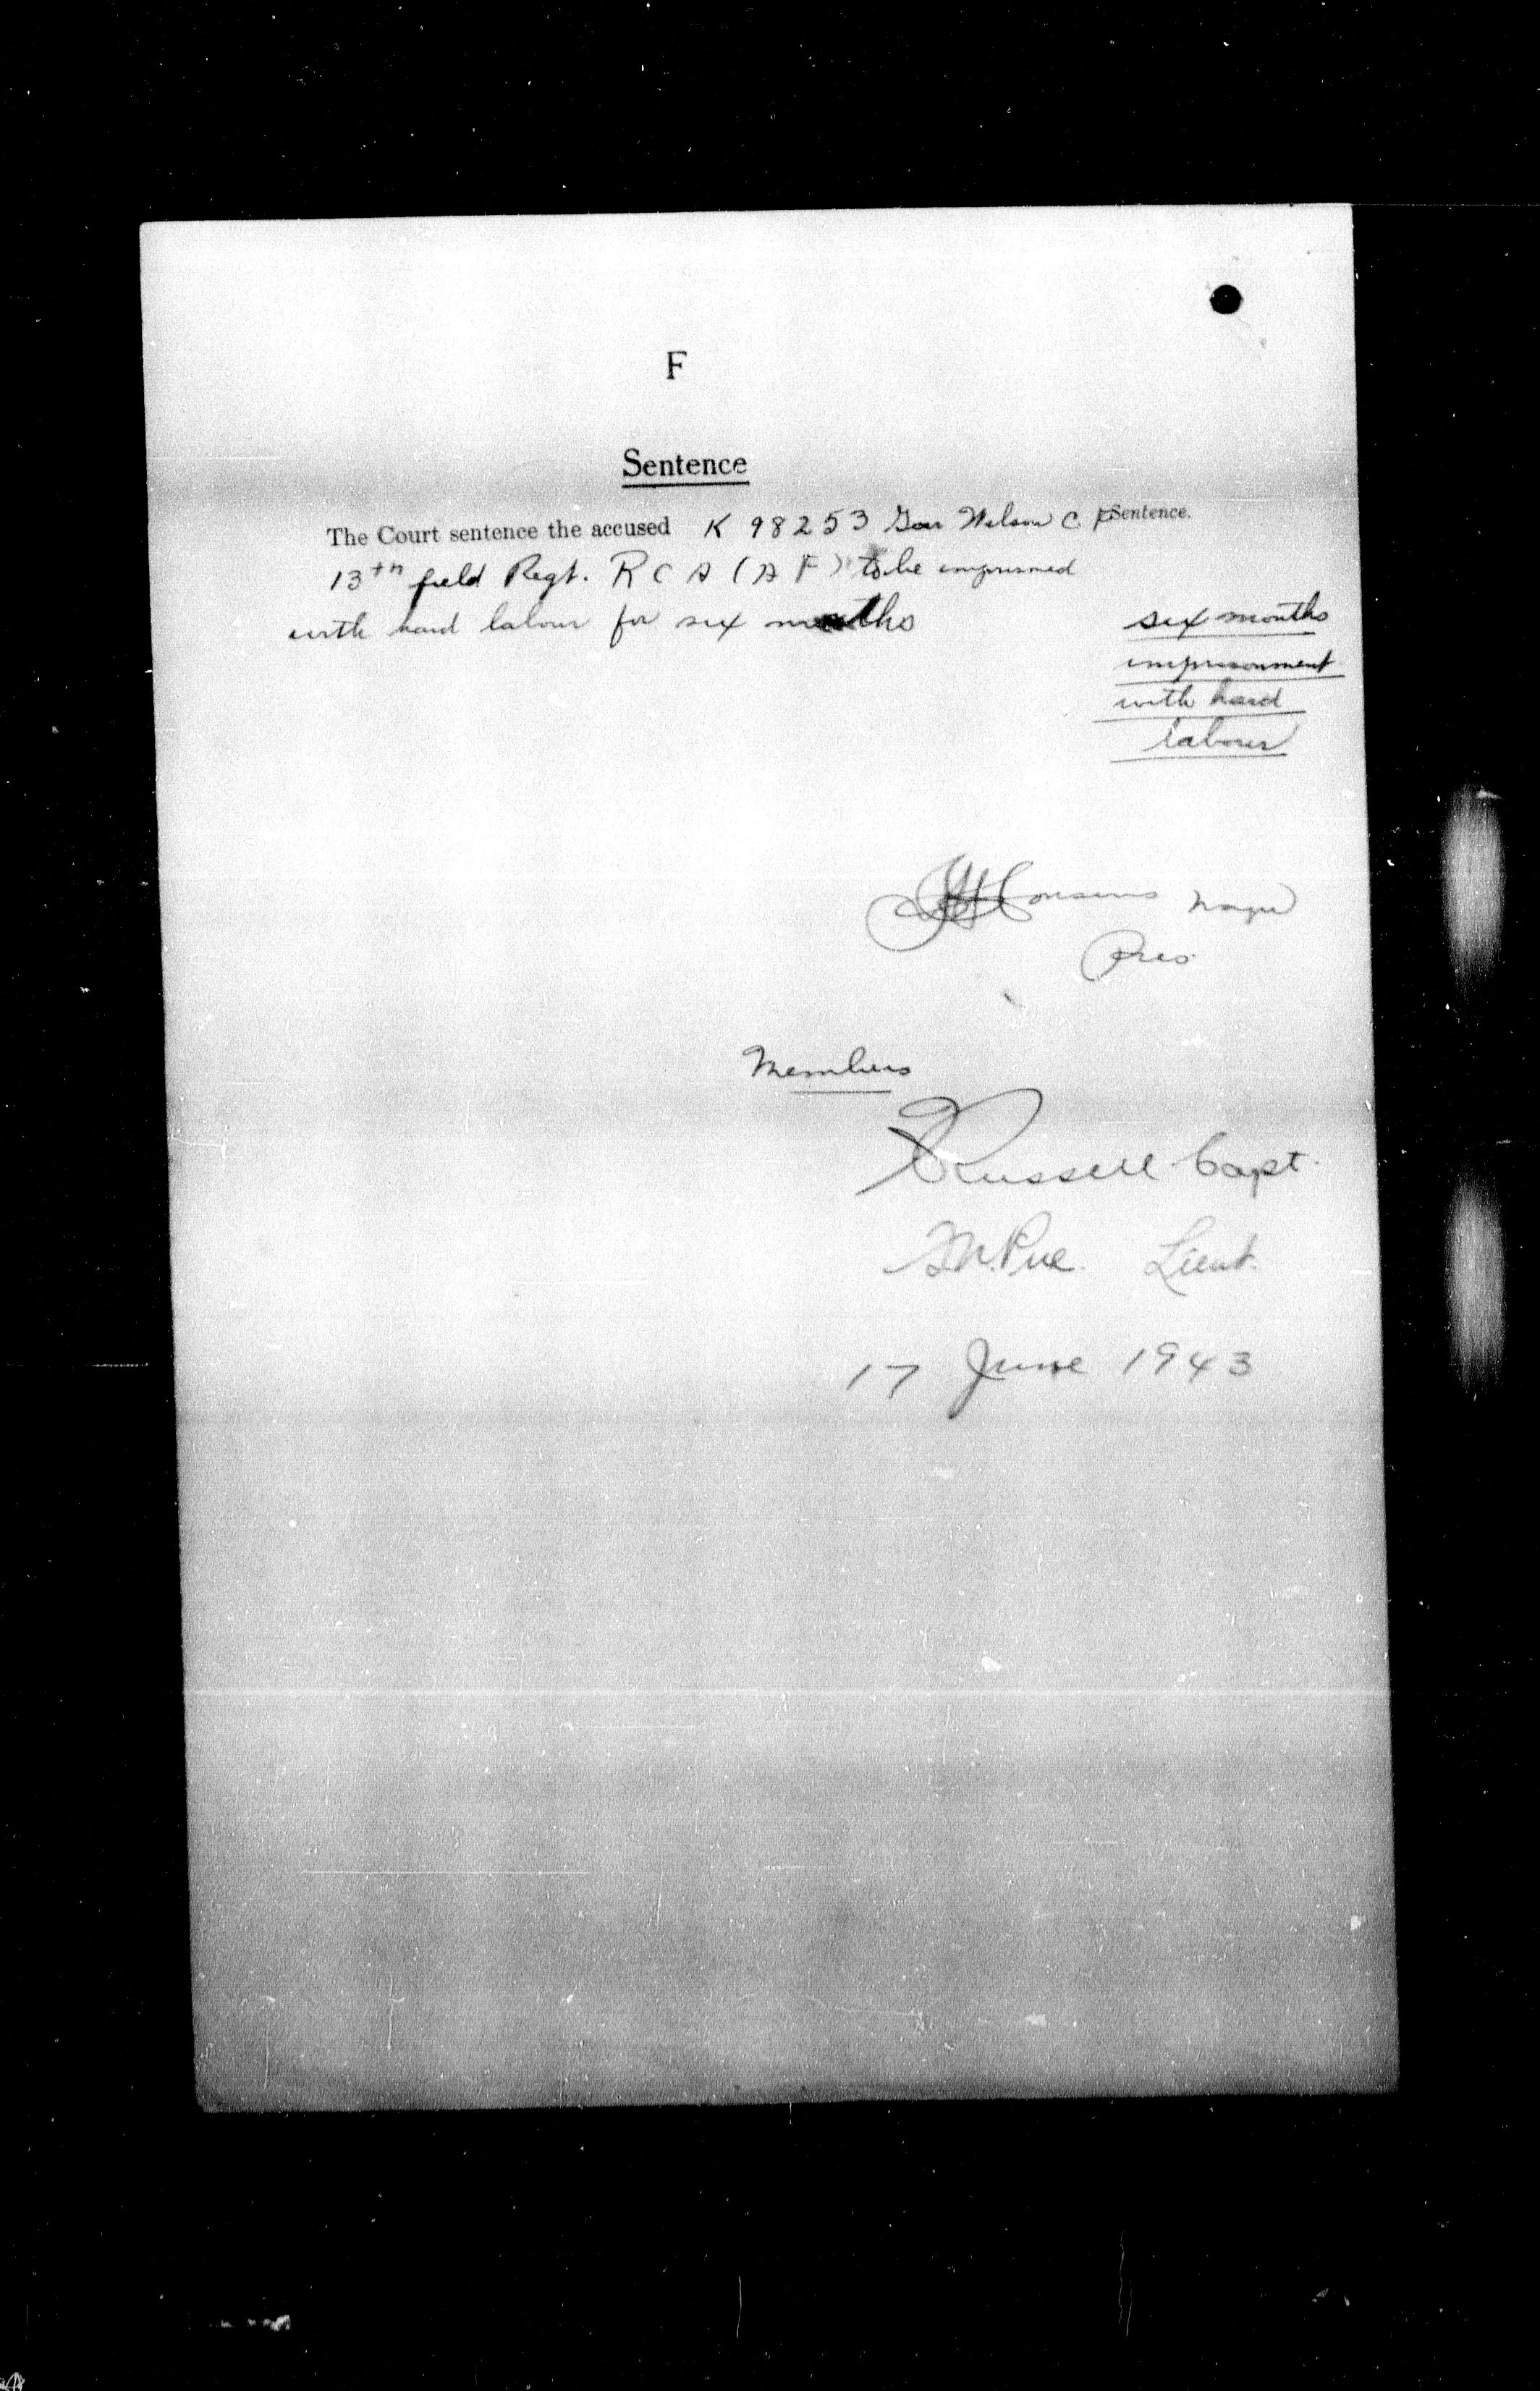 F
Sentence
The Court sentence the accused K 98253 Gnr Wilson C. F Sentence.
13th field Regt. R C A (A F) to be imprisoned
with hard labour for six months
six months
imprisonment
with hard
labour
Cousins Major
Pres.
Members
Russell Capt.
Pue. Lieut.
17 June 1943